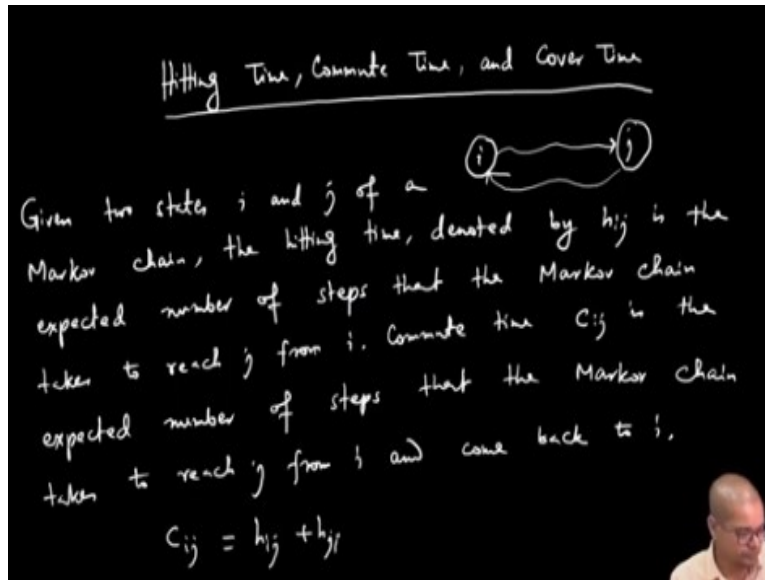 Hitting Time, Commute Time, and Cover Time
i j
Given two states i and j of a
Markov chain, the hitting time, denoted by hij is the
expected number of steps that the Markov chain
takes to reach j from i. Commute time Cij is the
expected number of steps that the Markov chain
takes to reach j from i and come back to i.
Cij = hij + hji